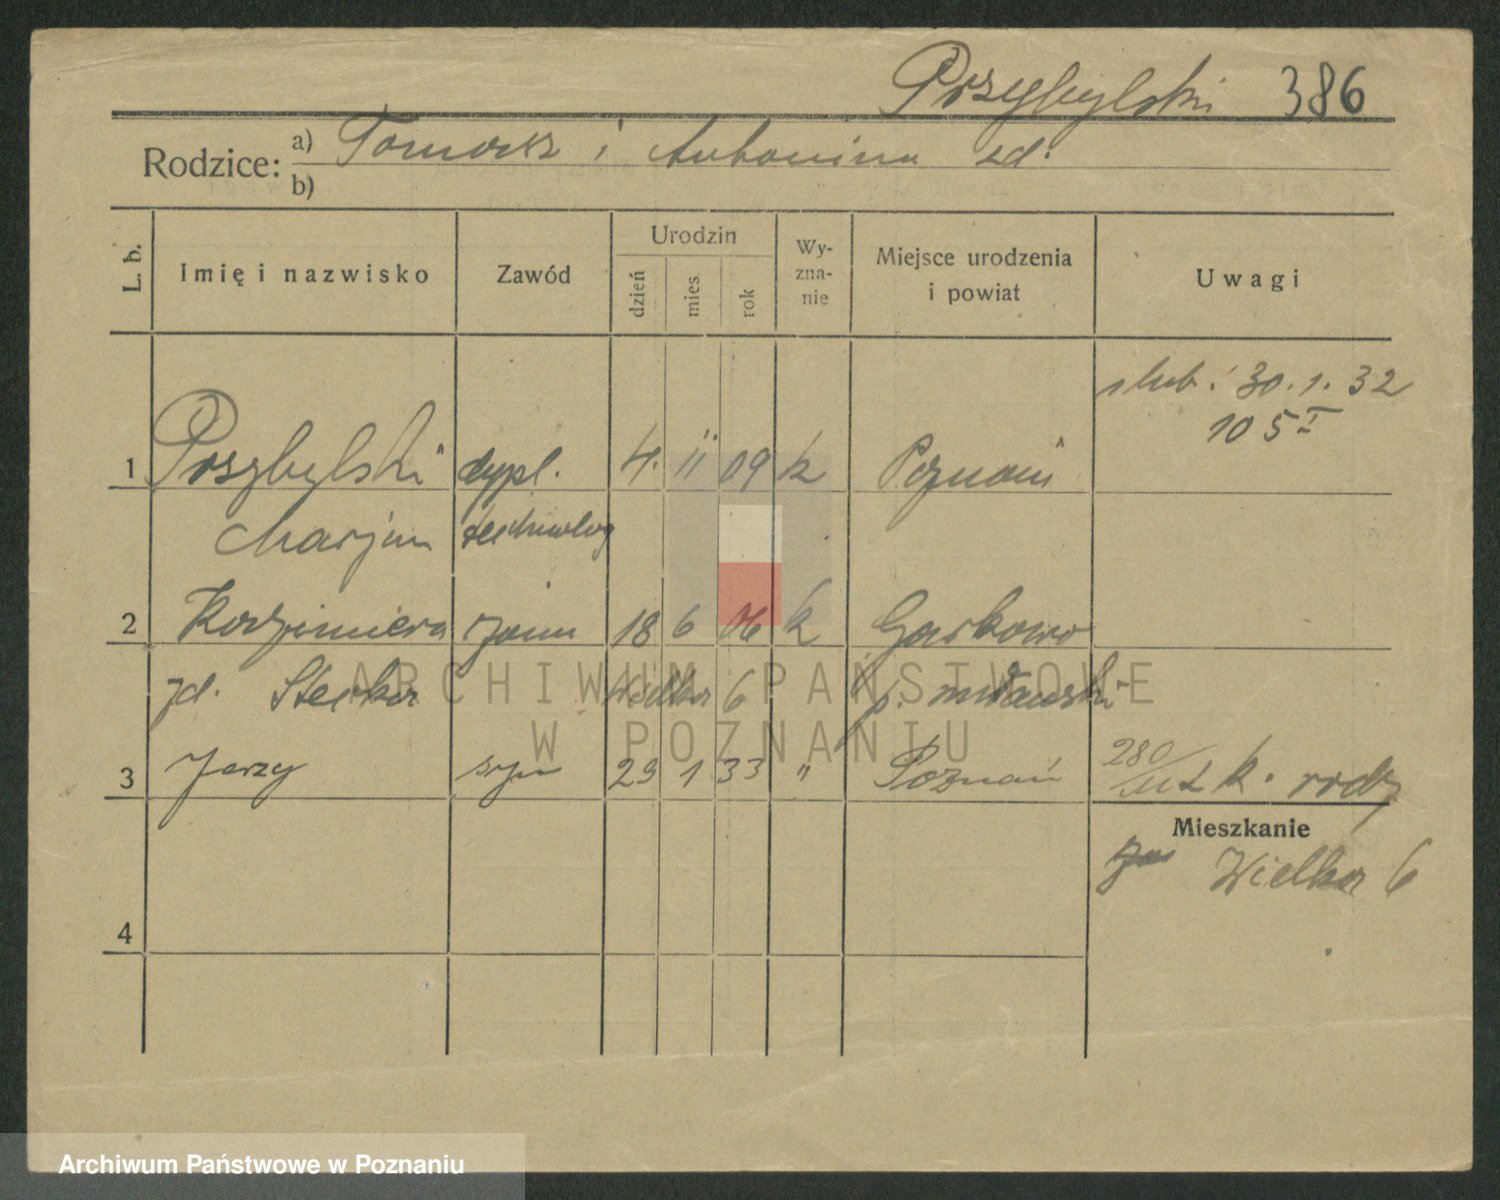 Przybylski 386
Rodzice: a) Tomasz i Antonina zd.
b)
L. b.
Imię i nazwisko
Zawód
Urodzin
dzień
mies.
rok
Wy-
zna-
nie
Miejsce urodzenia
i powiat
Uwagi
ślub. 30.1.32
105 I
1 Przybylski dypl. 4. 11 09 k Poznań
Marjan technolog
2 Kazimiera żona 18 6 06 k
zd. Wielka 6 p.
3 Jerzy syn 29 1 33 " Poznań
280/ k. rodz
Mieszkanie
Wielka 6
4
ARCHIWUM PAŃSTWOWE
W POZNANIU
Archiwum Państwowe w Poznaniu